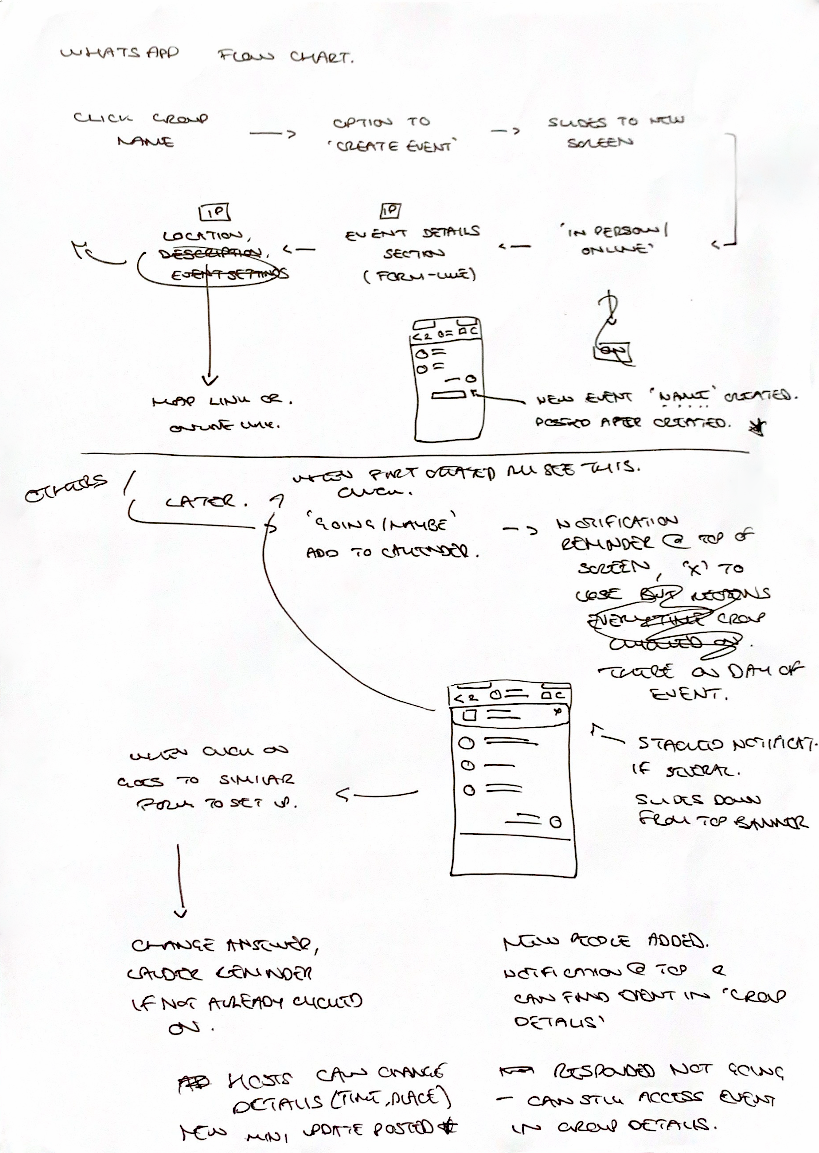 WHATSAPP FLOW CHART.
CLICK GROUP NAME
OPTION TO 'CREATE EVENT'
SLIDES TO NEW SCREEN
'IN PERSON/ ONLINE'
ON
IP
EVENT DETAILS
SECTION
(FORM-LIKE)
IP
LOCATION,
DESCRIPTION,
EVENT SETTINGS
MAP LINK OR.
ONLINE LINK.
NEW EVENT 'NAME' CREATED.
POSTED AFTER CREATED.
OTHERS
LATER.
WHEN FIRST CREATED ALL SEE THIS.
CLICK.
'GOING/MAYBE'
ADD TO CALENDER.
NOTIFICATION
REMINDER @ TOP OF
SCREEN, 'X' TO
CLOSE BUT
EVERYTIME GROUP
CLICKED ON.
THERE ON DAY OF
EVENT.
STACKED NOTIFICAT.
IF SEVERAL.
SLIDES DOWN
FROM TOP BANNER
WHEN CLICK ON
GOES TO SIMILAR
FORM TO SET UP.
CHANGE ANSWER,
REMINDER
IF NOT ALREADY CLICKED
ON.
NEW PEOPLE ADDED.
NOTIFICATION @ TOP &
CAN FIND EVENT IN 'GROUP
DETAILS'
HOSTS CAN CHANGE
DETAILS (TIME, PLACE)
NEW MINI UPDATE POSTED
RESPONDED NOT GOING
- CAN STILL ACCESS EVENT
IN GROUP DETAILS.